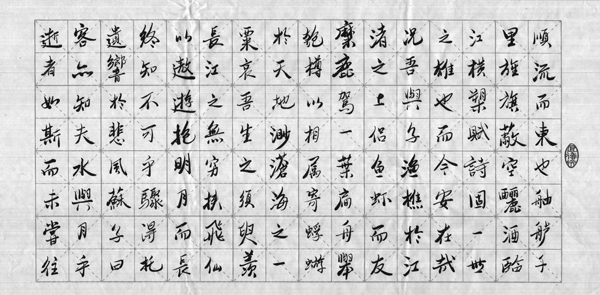 順流而東也舳艫千
里旌旗蔽空釃酒臨
江橫槊賦詩固一世
之雄也而今安在哉
況吾與子漁樵於江
渚之上侶魚蝦而友
麋鹿駕一葉扁舟舉
匏樽以相属寄蜉蝣
於天地渺滄海之一
粟哀吾生之須臾羨
長江之無窮挾飛仙
以遨遊抱明月而長
終知不可乎驟得托
遺響於悲風蘇子曰
客亦知夫水與月乎
逝者如斯而未嘗往